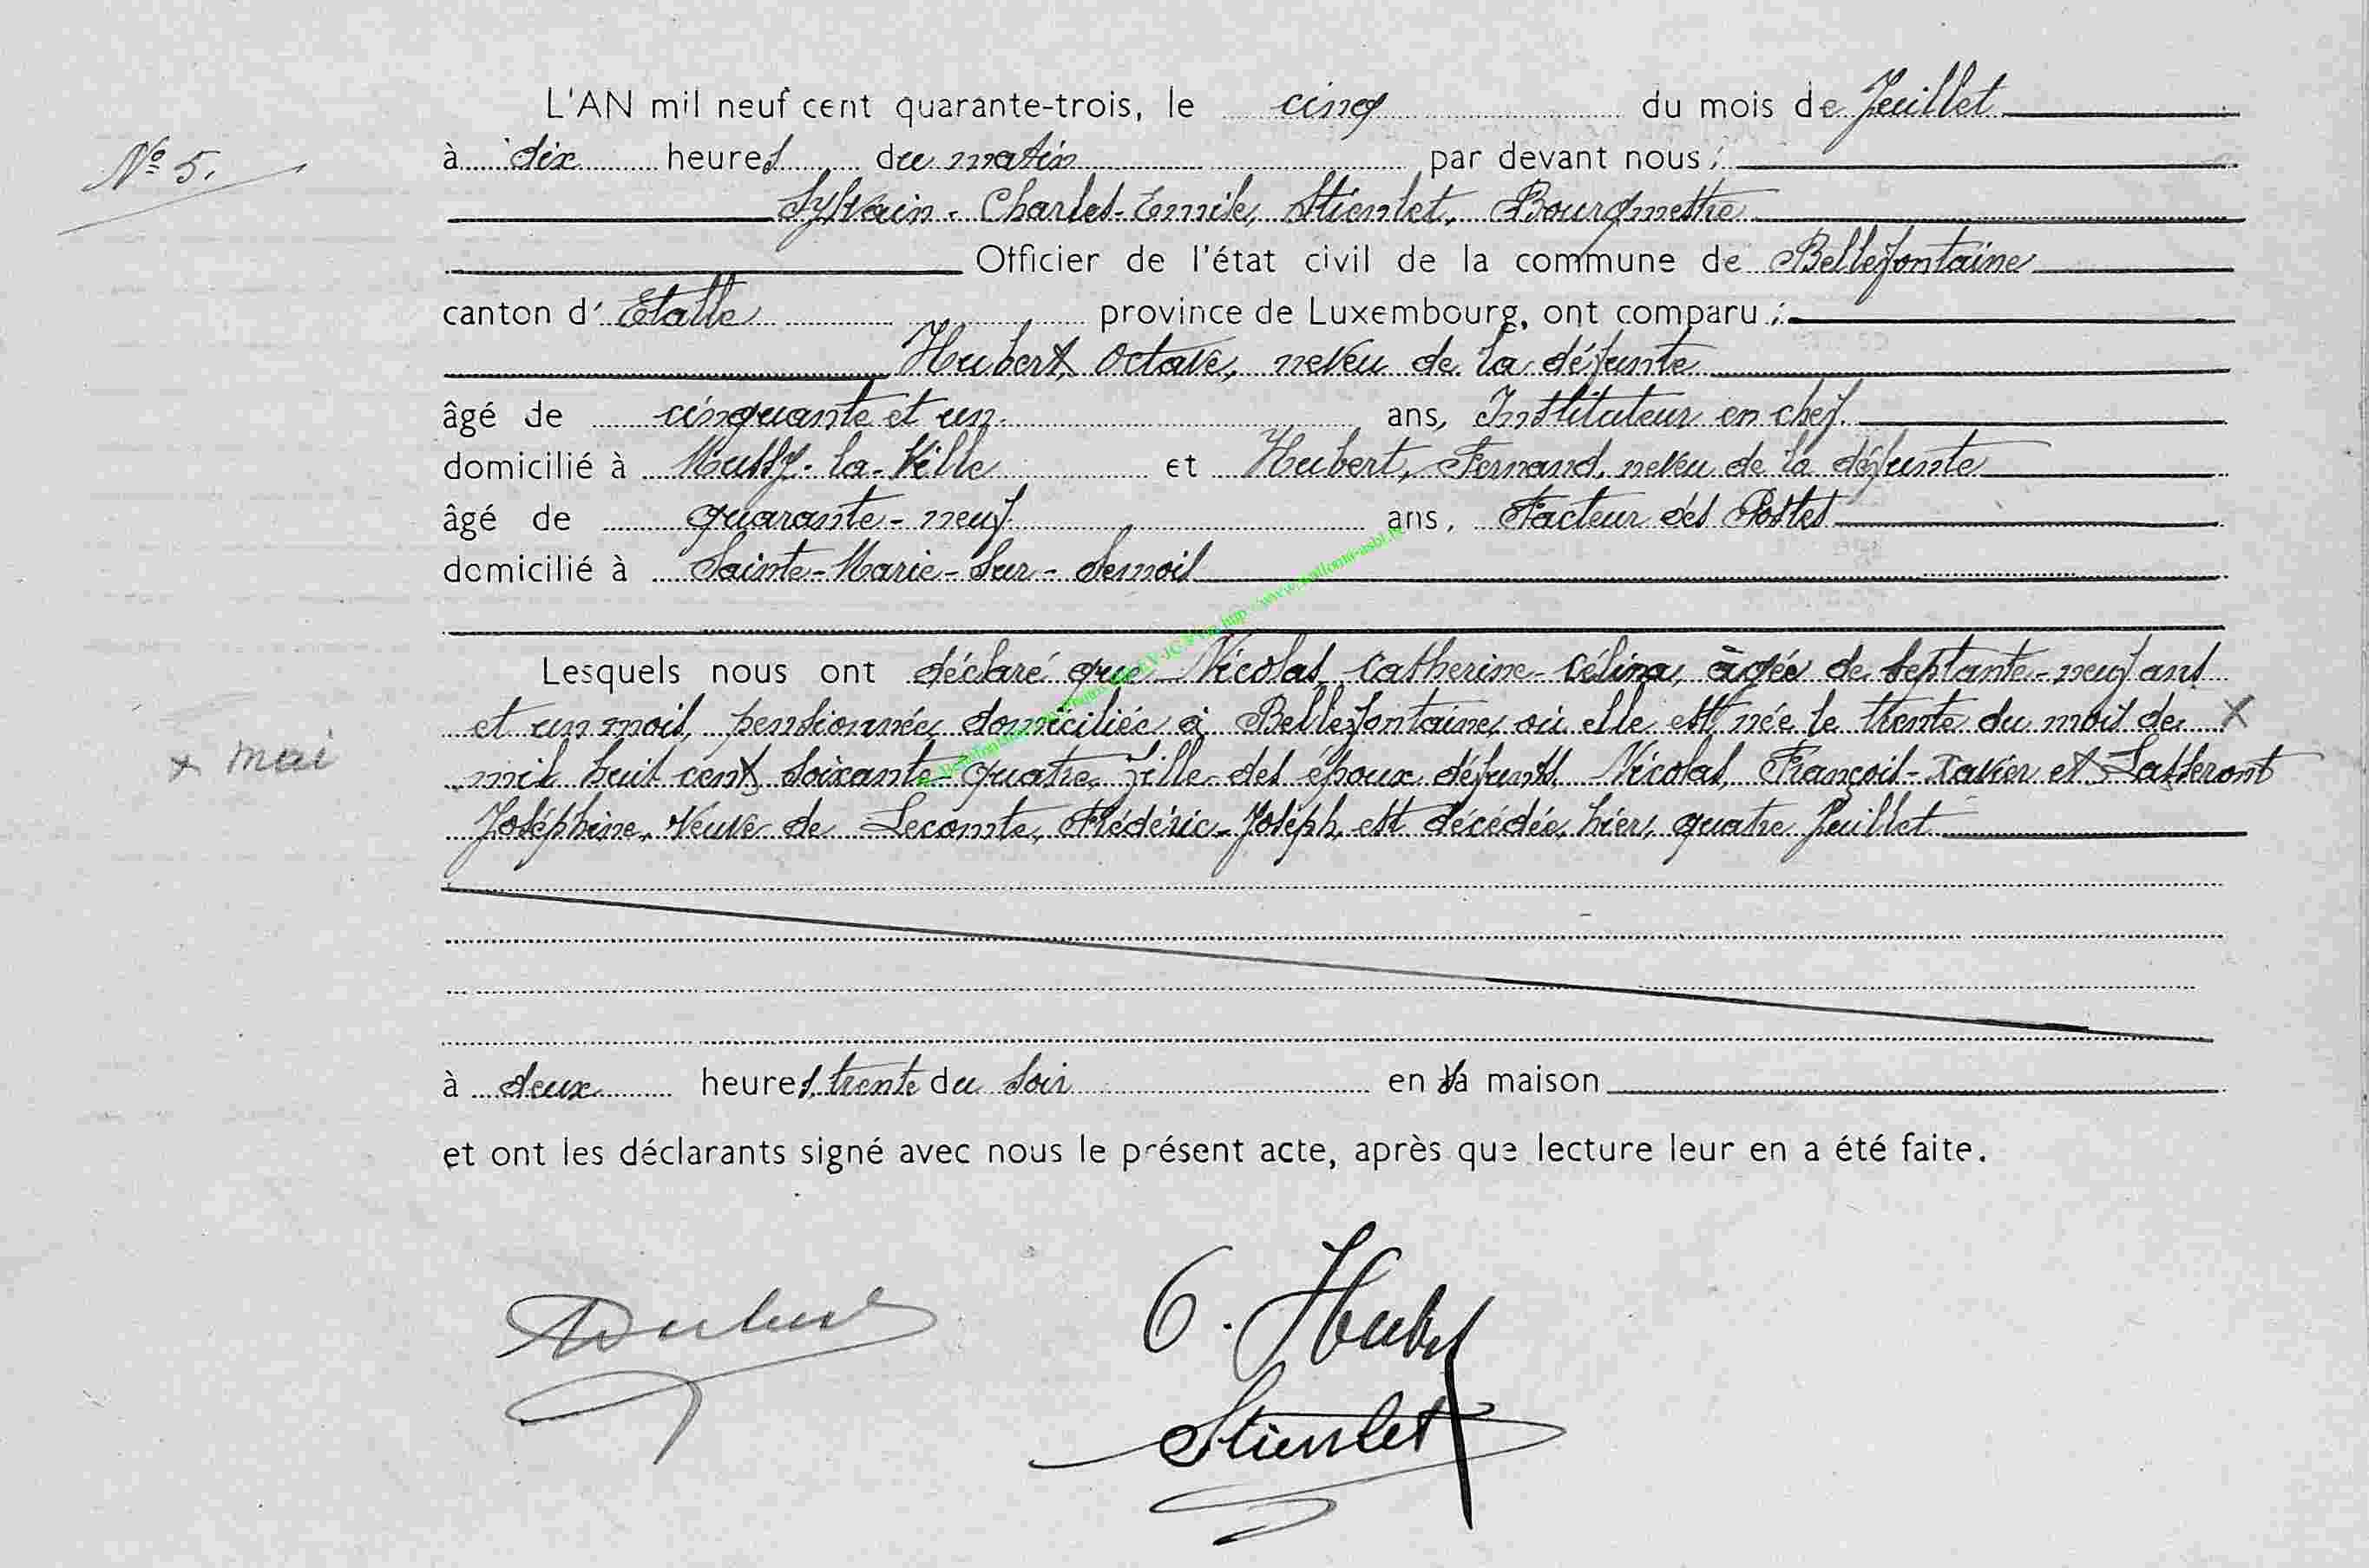 L'AN mil neuf cent quarante-trois, le cinq du mois de Juillet
N° 5.
à dix heures du matin par devant nous :
Sylvain-Charles-Emile, Stienlet, Bourgmestre
Officier de l'état civil de la commune de Bellefontaine
canton d' Etalle province de Luxembourg, ont comparu :
Hubert, Octave, neveu de la défunte
âgé de cinquante et un ans, Instituteur en chef.
domicilié à Mussy-la-Ville et Hubert, Fernand, neveu de la défunte
âgé de quarante-neuf ans, Facteur des Postes
domicilié à Sainte-Marie-Sur-Semois
Lesquels nous ont déclaré que Nicolas, Catherine-Célina, âgée de septante-neuf ans
et un mois, pensionnée, domiciliée à Bellefontaine, où elle est née le trente du mois de x
x mai
mil huit cent soixante-quatre, fille des époux défunts, Nicolas, François-Xavier et Lasseront
Joséphine, Veuve de Lecomte, Frédéric-Joseph, est décédée, hier, quatre Juillet
à deux heures trente du soir en sa maison
et ont les déclarants signé avec nous le présent acte, après que lecture leur en a été faite.
O. Hubert
Stienlet